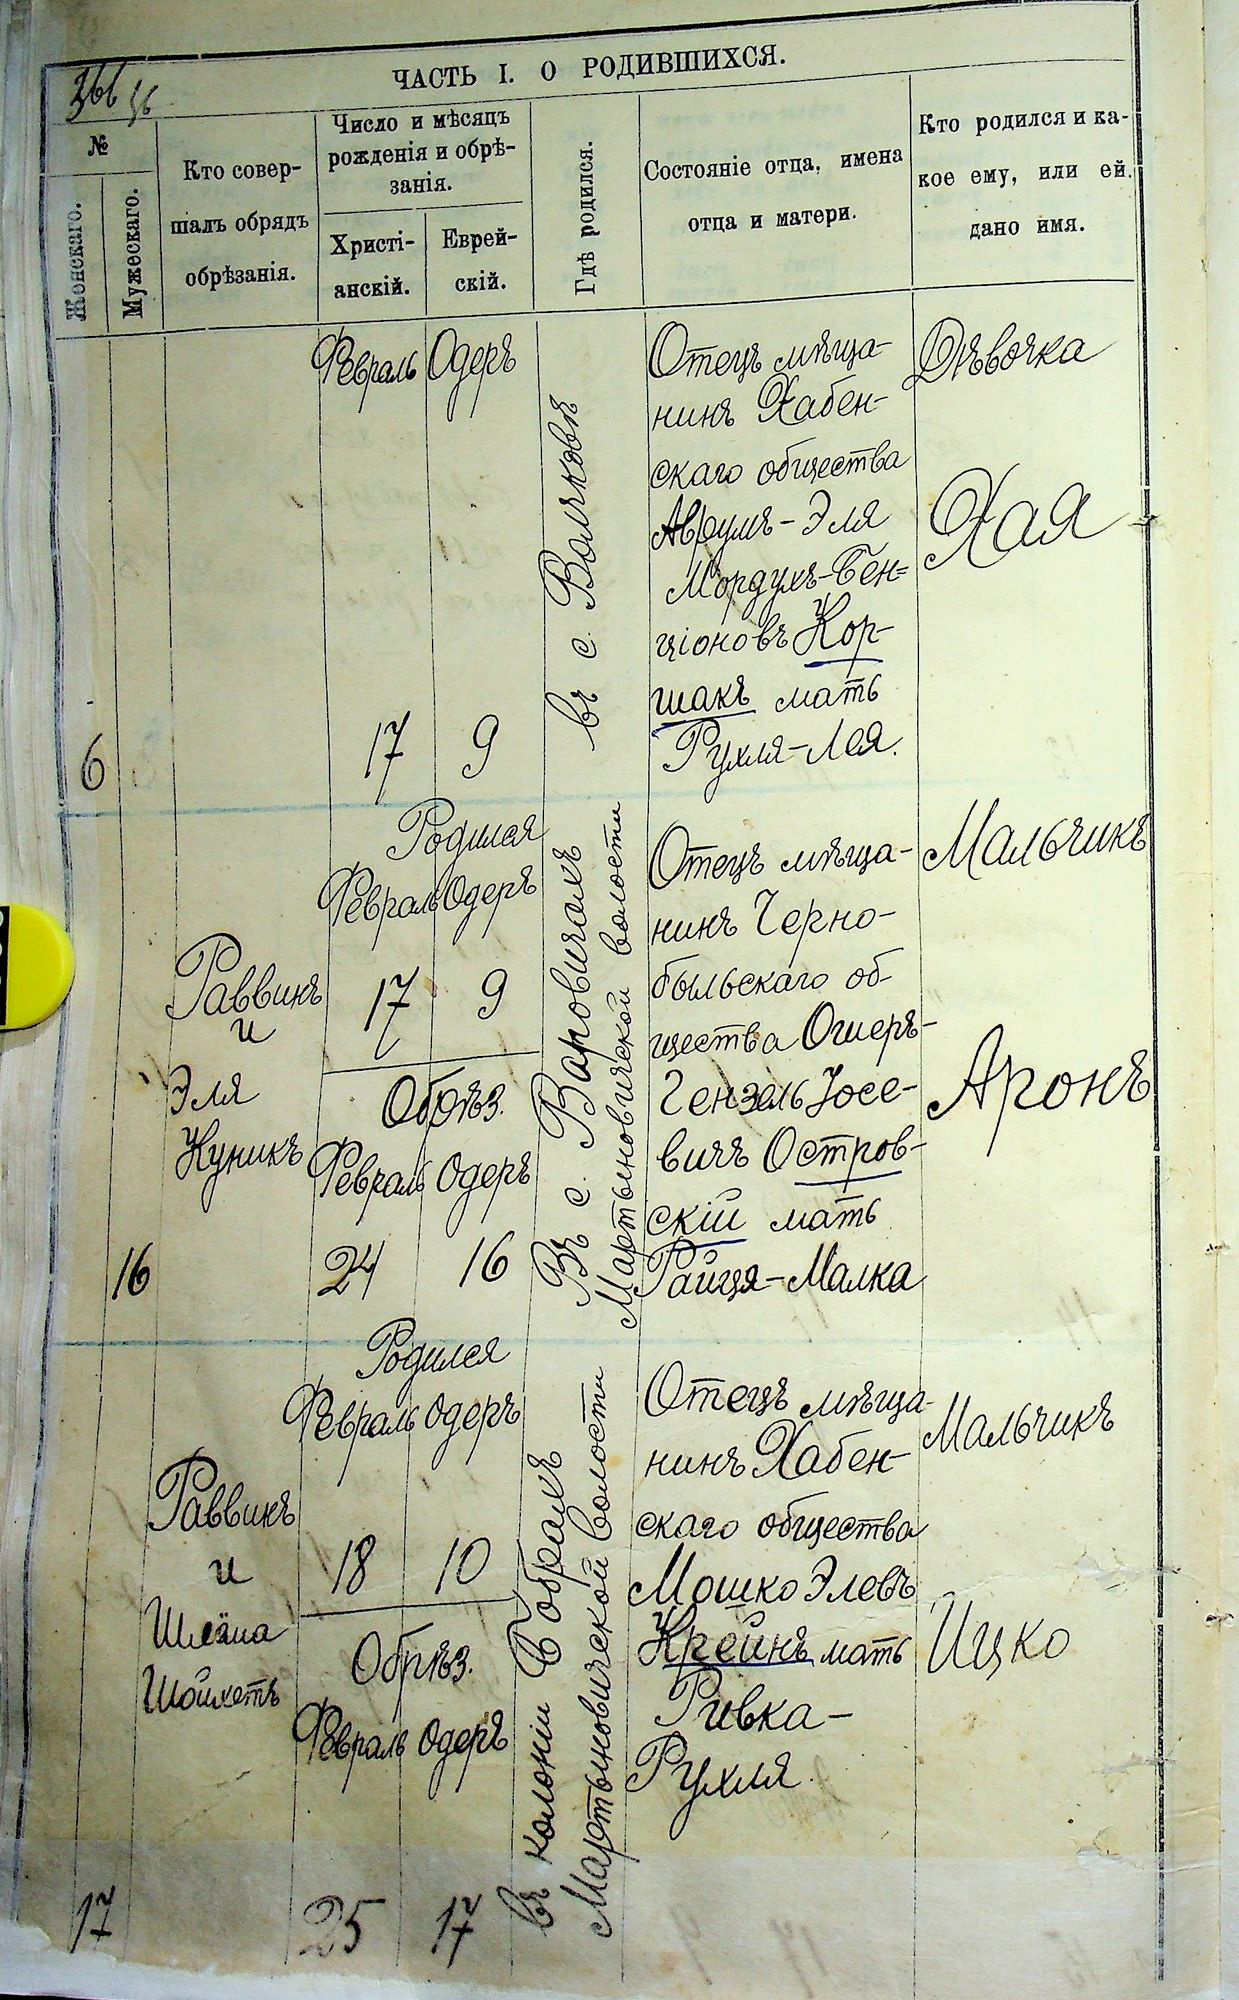 ЧАСТЬ I. О РОДИВШИХСЯ.
№
Женскаго.
Мужескаго.
Кто совер-
шалъ обрядъ
обрѣзанія.
Число и мѣсяцъ
рожденія и обрѣ-
занія.
Христі-
анскій.
Еврей-
скій.
Гдѣ родился.
Состояніе отца, имена
отца и матери.
Кто родился и ка-
кое ему, или ей
дано имя.
6
Февраль Одеръ
17 9
въ с. Волчковѣ
Отецъ мѣща-
нинъ Хабен-
скаго общества
Аврумъ-Эля
Мордухъ-Бен=
ціоновъ Кор-
шакъ мать
Рухля-Лея.
Дѣвочка
Хая
16
Раввинъ
и
Эля
Куникъ
Родился
Февраль Одеръ
17 9
Обрѣз.
Февраль Одеръ
24 16
Въ с. Варовичахъ
Мартыновичской волости
Отецъ мѣща-
нинъ Черно-
быльскаго об-
щества Ошеръ-
Гензель Іосе-
вичъ Остров-
скій мать
Райця-Малка
Мальчикъ
Аронъ
17
Раввинъ
и
Шлёма
Шойхетъ
Родился
Февраль Одеръ
18 10
Обрѣз.
Февраль Одеръ
25 17
въ колоніи Бобрахъ
Мартыновичской волости
Отецъ мѣща-
нинъ Хабен-
скаго общества
Мошко Элевъ
Крейнъ мать
Ривка-
Рухля
Мальчикъ
Ицко